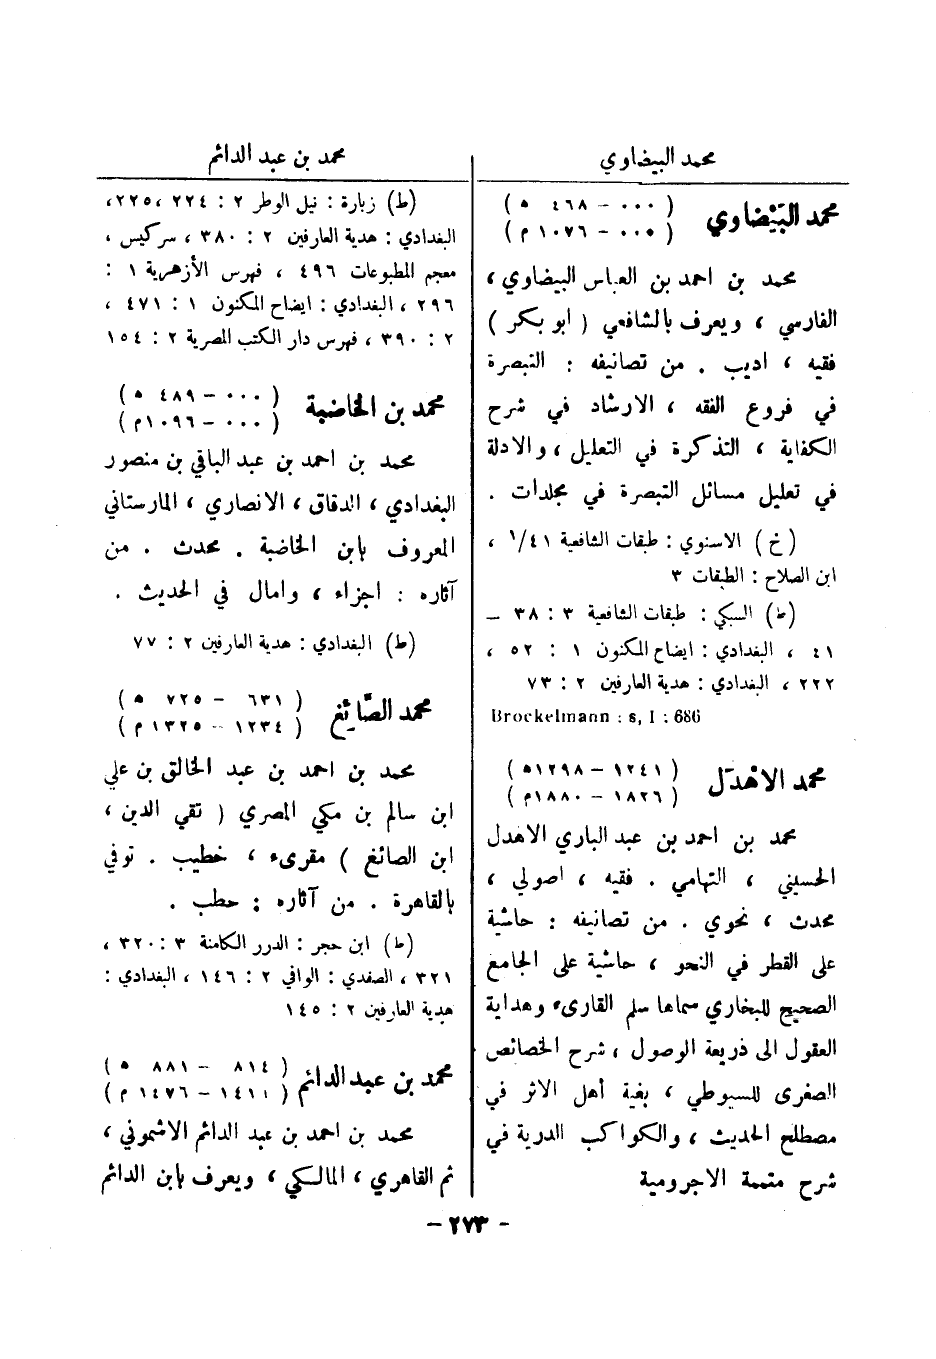 محمد البيضاوي
محمد البَيْضاوي ( ٠٠٠ – ٤٦٨ ه )
( ٠٠٠ – ١٠٧٦ م )
محمد بن احمد بن العباس البيضاوي ،
الفارسي ، ويعرف بالشافعي ( ابو بكر )
فقيه ، اديب . من تصانيفه : التبصرة
في فروع الفقه ، الارشاد في شرح
الكفاية ، التذكرة في التعليل ، والادلة
في تعليل مسائل التبصرة في مجلدات .
( خ ) الاسنوي : طبقات الشافعية ٤١ /١ ،
ابن الصلاح : الطبقات ٣
( ط ) السبكي : طبقات الشافعية ٣ : ٣٨ –
٤١ ، البغدادي : ايضاح المكنون ١ : ٥٢ ،
٢٢٢ ، البغدادي : هدية العارفين ٢ : ٧٣
Brockelmann : s, I : 686
محمد الاهْدَل ( ١٢٤١ – ١٢٩٨ه )
( ١٨٢٦ – ١٨٨٠م )
محمد بن احمد بن عبد الباري الاهدل
الحسيني ، التهامي . فقيه ، اصولي ،
محدث ، نحوي . من تصانيفه : حاشية
على القطر في النحو ، حاشية على الجامع
الصحيح للبخاري سماها سلم القارىء وهداية
العقول الى ذريعة الوصول ، شرح الخصائص
الصغرى للسيوطي ، بغية أهل الاثر في
مصطلح الحديث ، والكواكب الدرية في
شرح متممة الاجرومية
محمد بن عبد الدائم
( ط ) زبارة : نيل الوطر ٢ : ٢٢٤ ،٢٢٥،
البغدادي : هدية العارفين ٢ : ٣٨٠ ، سركيس ،
معجم المطبوعات ٤٩٦ ، فهرس الأزهرية ١ :
٢٩٦ ، البغدادي : ايضاح المكنون ١ : ٤٧١ ،
٢ : ٣٩٠ ، فهرس دار الكتب المصرية ٢ : ١٥٤
محمد بن الخاضبة ( ٠٠٠ – ٤٨٩ ه )
( ٠٠٠ – ١٠٩٦م )
محمد بن احمد بن عبد الباقي بن منصور
البغدادي ، الدقاق ، الانصاري ، المارستاني
المعروف بابن الخاضبة . محدث . من
آثاره : اجزاء ، وامال في الحديث .
( ط ) البغدادي : هدية العارفين ٢ : ٧٧
محمد الصّائِغ ( ٦٣١ – ٧٢٥ ه )
( ١٢٣٤ – ١٣٢٥ م )
محمد بن احمد بن عبد الخالق بن علي
ابن سالم بن مكي المصري ( تقي الدين ،
ابن الصائغ ) مقرىء ، خطيب . توفي
بالقاهرة . من آثاره : خطب .
( ط ) ابن حجر : الدرر الكامنة ٣ : ٣٢٠ ،
٣٢١ ، الصفدي : الوافي ٢ : ١٤٦ ، البغدادي :
هدية العارفين ٢ : ١٤٥
محمد بن عبد الدائم ( ٨١٤ – ٨٨١ ه )
( ١٤١١ – ١٤٧٦ م )
محمد بن احمد بن عبد الدائم الاشموني ،
ثم القاهري ، المالكي ، ويعرف بابن الدائم
– ٢٧٣ –